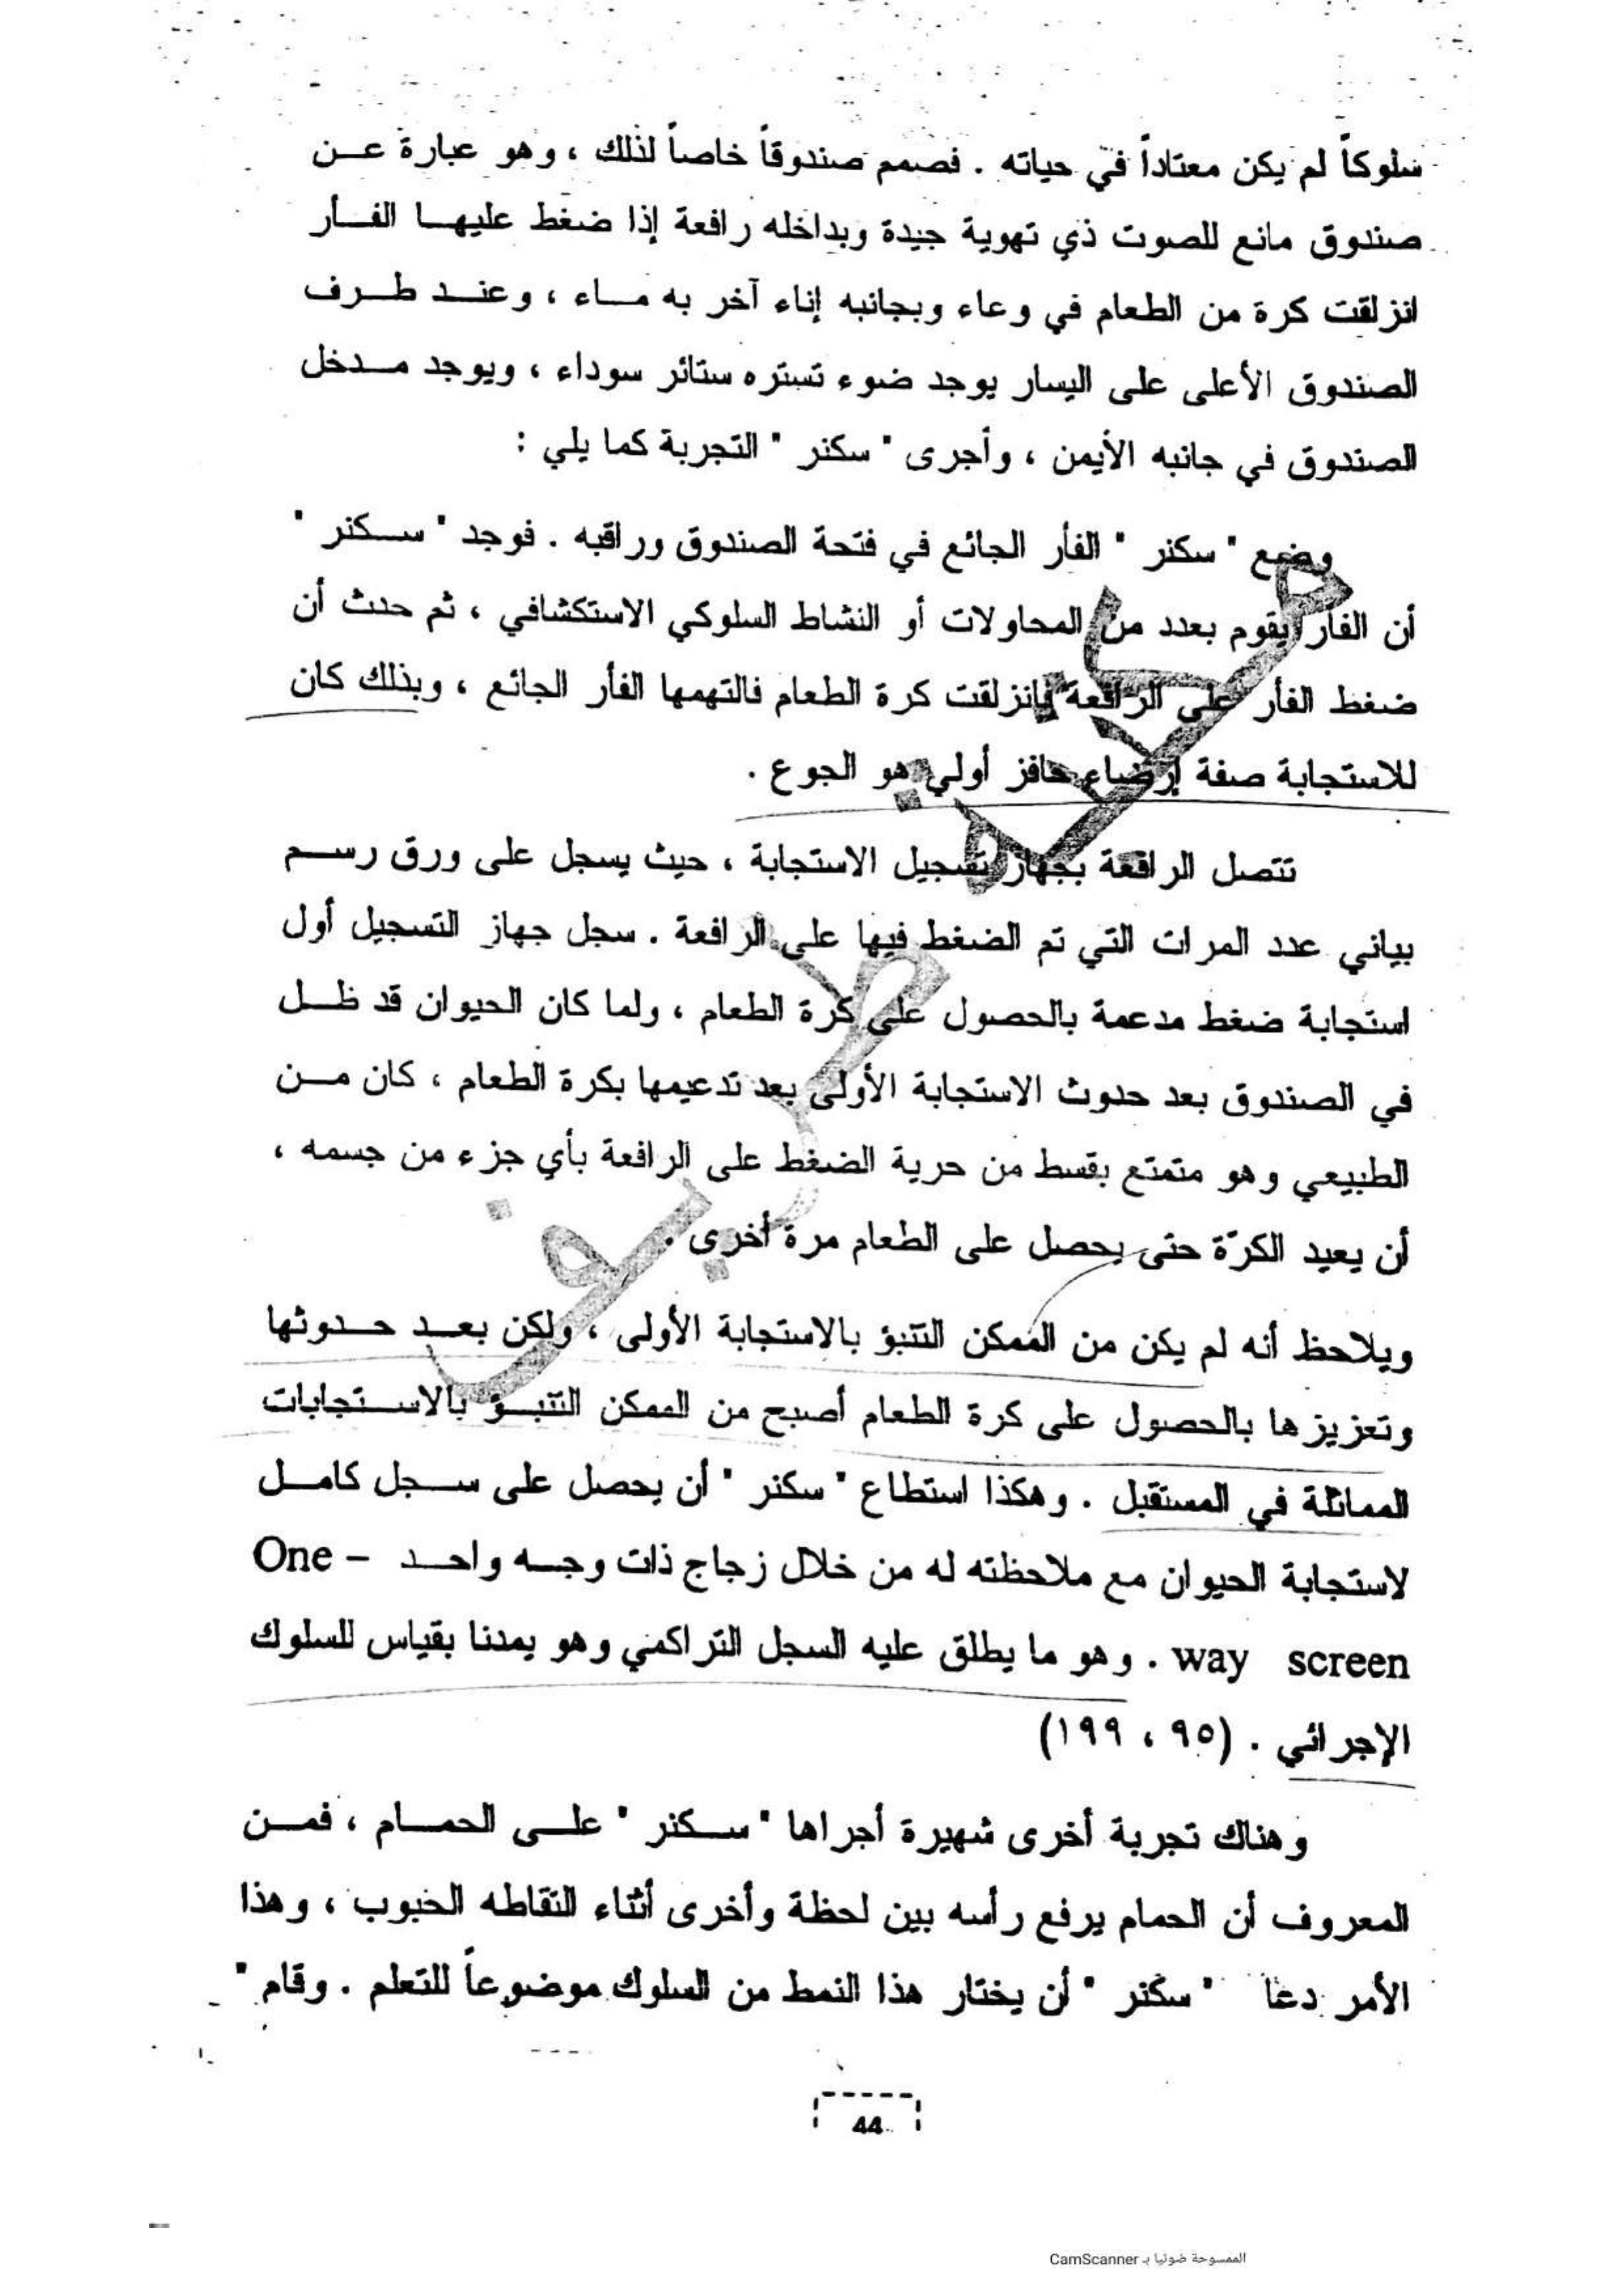 سلوكاً لم يكن معتاداً في حياته . فصمم صندوقاً خاصاً لذلك ، وهو عبارة عن
صندوق مانع للصوت ذي تهوية جيدة وبداخله رافعة إذا ضغط عليها الفأر
انزلقت كرة من الطعام في وعاء وبجانبه إناء آخر به ماء ، وعند طرف
الصندوق الأعلى على اليسار يوجد ضوء تستره ستائر سوداء ، ويوجد مدخل
الصندوق في جانبه الأيمن ، وأجرى " سكنر " التجربة كما يلي :
وضع " سكنر " الفأر الجائع في فتحة الصندوق وراقبه . فوجد " سكنر "
أن الفأر يقوم بعدد من المحاولات أو النشاط السلوكي الاستكشافي ، ثم حدث أن
ضغط الفأر على الرافعة فانزلقت كرة الطعام فالتهمها الفأر الجائع ، وبذلك كان
للاستجابة صفة إرضاء حافز أولي هو الجوع .
تتصل الرافعة بجهاز تسجيل الاستجابة ، حيث يسجل على ورق رسم
بياني عدد المرات التي تم الضغط فيها على الرافعة . سجل جهاز التسجيل أول
استجابة ضغط مدعمة بالحصول على كرة الطعام ، ولما كان الحيوان قد ظل
في الصندوق بعد حدوث الاستجابة الأولى بعد تدعيمها بكرة الطعام ، كان من
الطبيعي وهو متمتع بقسط من حرية الضغط على الرافعة بأي جزء من جسمه ،
أن يعيد الكرّة حتى يحصل على الطعام مرة أخرى .
ويلاحظ أنه لم يكن من الممكن التنبؤ بالاستجابة الأولى ، ولكن بعد حدوثها
وتعزيزها بالحصول على كرة الطعام أصبح من الممكن التنبؤ بالاستجابات
المماثلة في المستقبل . وهكذا استطاع " سكنر " أن يحصل على سجل كامل
لاستجابة الحيوان مع ملاحظته له من خلال زجاج ذات وجه واحد One –
way screen . وهو ما يطلق عليه السجل التراكمي وهو يمدنا بقياس للسلوك
الإجرائي . (٩٥ ، ١٩٩)
وهناك تجربة أخرى شهيرة أجراها " سكنر " على الحمام ، فمن
المعروف أن الحمام يرفع رأسه بين لحظة وأخرى أثناء التقاطه الحبوب ، وهذا
الأمر دعا " سكنر " أن يختار هذا النمط من السلوك موضوعاً للتعلم . وقام "
44
الممسوحة ضوئيا بـ CamScanner